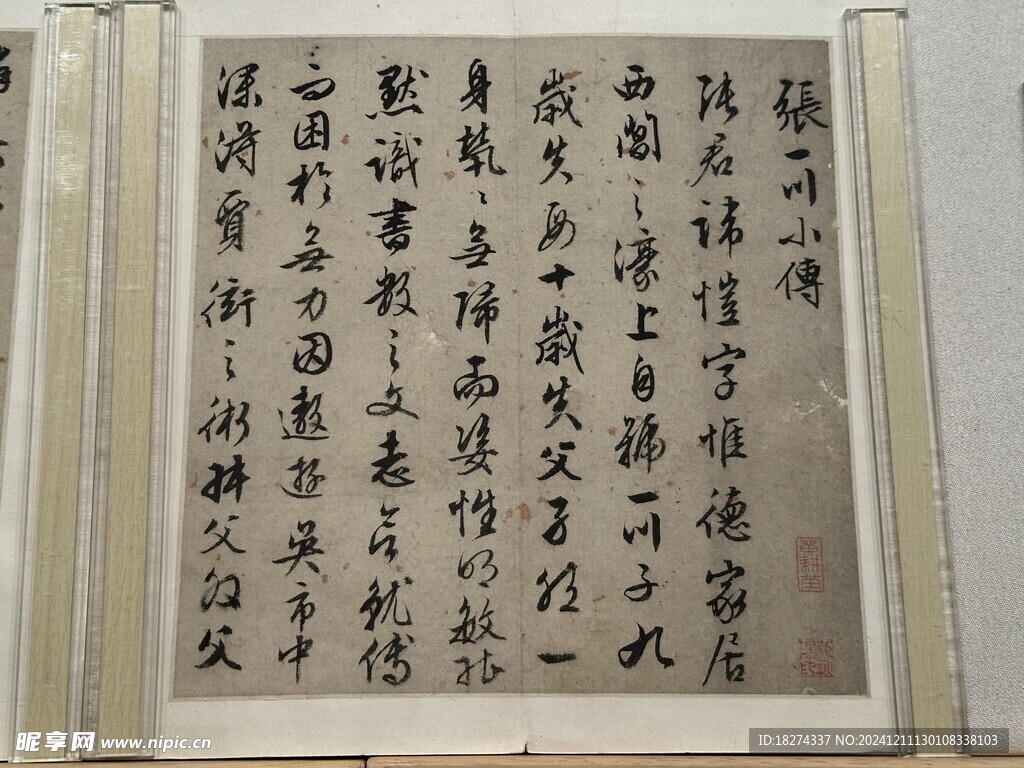 張一川小傳
張君諱愷字惟德家居
西閶之濠上自號一川子九
歲失母十歲失父孑然一
身煢〻無歸而姿性明敏能
默識書數之文志欲就傅
而困於無力因遨遊吳市中
深得賈衒之術拜父為父
昵享网 www.nipic.cn
ID:18274337 NO:20241211130108338103